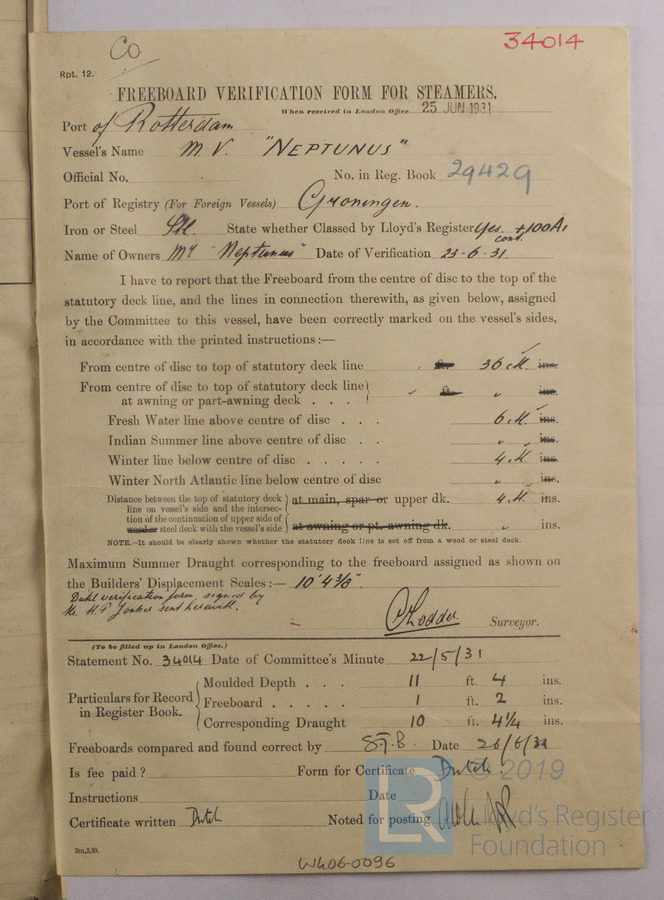 Co
34014
Rpt. 12.
FREEBOARD VERIFICATION FORM FOR STEAMERS.
When received in London Office 25 JUN 1931
Port of Rotterdam
Vessel's Name M.V. "NEPTUNUS"
Official No. No. in Reg. Book 29429
Port of Registry (For Foreign Vessels) Groningen.
Iron or Steel Stl. State whether Classed by Lloyd's Register Yes +100A1
cont.
Name of Owners My "Neptunus" Date of Verification 23-6-31.
I have to report that the Freeboard from the centre of disc to the top of the
statutory deck line, and the lines in connection therewith, as given below, assigned
by the Committee to this vessel, have been correctly marked on the vessel's sides,
in accordance with the printed instructions:—
From centre of disc to top of statutory deck line ft. 36 cM. ins.
From centre of disc to top of statutory deck line
at awning or part-awning deck . . . ft. " ins.
Fresh Water line above centre of disc . . . 6 cM. ins.
Indian Summer line above centre of disc . . " " ins.
Winter line below centre of disc . . . . . 4 cM. ins.
Winter North Atlantic line below centre of disc " ins.
Distance between the top of statutory deck
line on vessel's side and the intersec-
tion of the continuation of upper side of
wooden steel deck with the vessel's side
at main, spar or upper dk. 4 M. ins.
at awning or pt. awning dk. " ins.
NOTE.—It should be clearly shown whether the statutory deck line is set off from a wood or steel deck.
Maximum Summer Draught corresponding to the freeboard assigned as shown on
the Builders' Displacement Scales:— 10' 4 3/8".
Dutch verification form, signed by
Mr. H.P. Jonker sent herewith.
C Lodder. Surveyor.
(To be filled up in London Office.)
Statement No. 34014 Date of Committee's Minute 22/5/31
Particulars for Record
in Register Book.
Moulded Depth . . . 11 ft. 4 ins.
Freeboard . . . . . 1 ft. 2 ins.
Corresponding Draught 10 ft. 4 1/4 ins.
Freeboards compared and found correct by S.J.B. Date 26/6/31
Is fee paid? Form for Certificate Dutch.
Instructions Date
Certificate written Dutch Noted for posting
2m,2,30.
W406-0096
LR
© 2019
Lloyd's Register
Foundation